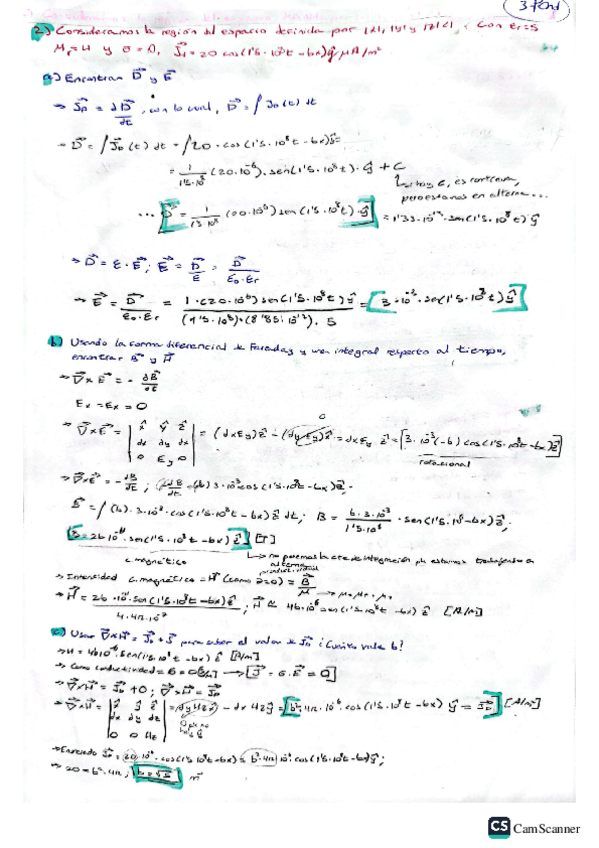 2) Consideramos la región del espacio definida por |x|, |y| y |z|<1, con εr=5
μr=4 y σ=0, J⃗d=20 cos(1'5·10⁸t-bx)ŷ μA/m²
a) Encontrar D⃗ y E⃗
→ J⃗D = ∂D⃗/∂t, con lo cual, D⃗ = ∫J⃗D(t) dt
→ D⃗ = ∫J⃗D(t) dt = ∫20·cos(1'5·10⁸t-bx)ŷ=
= 1/1'5·10⁸ (20·10⁻⁶)·sen(1'5·10⁸t)·ŷ + C
↳ hay C, es continua,
pero estamos en alterna...
... D⃗ = 1/1'5·10⁸ (20·10⁻⁶) sen(1'5·10⁸t)·ŷ = 1'33·10⁻¹³·sen(1'5·10⁸t)ŷ
→ D⃗ = ε·E⃗; E⃗ = D⃗/ε = D⃗/ε₀·εr
→ E⃗ = D⃗/ε₀·εr = 1·(20·10⁻⁶) sen(1'5·10⁸t)ŷ/(1'5·10⁸)·(8'85·10⁻¹²)·5 = 3·10⁻³·sen(1'5·10⁸t)ŷ
b) Usando la forma diferencial de Faraday y una integral respecto al tiempo,
encontrar B⃗ y H⃗
→ ∇⃗×E⃗ = - ∂B⃗/∂t
Ex = Ez = 0
→ ∇⃗×E⃗ = |x̂ ŷ ẑ dx dy dz 0 Ey 0| = (dxEy)ẑ - (dyEy)x̂ = dxEy ẑ = 3·10⁻³(-b) cos(1'5·10⁸t-bx)ẑ
0
rotacional
→ ∇⃗×E⃗ = -dB⃗/dt; dB/dt = (b) 3·10⁻³ cos(1'5·10⁸t-bx)ẑ.
B⃗ = ∫(b)·3·10⁻³·cos(1'5·10⁸t-bx)ẑ dt; B = b·3·10⁻³/1'5·10⁸ ·sen(1'5·10⁸-bx)ẑ;
B = 2b·10⁻¹¹·sen(1'5·10⁸t-bx)ẑ [T]
C. magnético
↳ no ponemos la cte de integración pk estamos trabajando en alterna
→ Intensidad C. magnético = H⃗ = B⃗/μ → μ₀·μr
→ H⃗ = 2b·10⁻¹¹·sen(1'5·10⁸t-bx)ẑ/4·4π·10⁻⁷; H⃗ ≈ 4b·10⁻⁶ sen(1'5·10⁸t-bx)ẑ [A/m]
c) Usar ∇⃗×H⃗ = J⃗D+J⃗ para saber el valor de J⃗D ¿Cuánto vale b?
→ H = 4b·10⁻⁶·sen(1'5·10⁸t-bx)ẑ [A/m]
→ Como conductividad = σ = 0 → [J⃗ = σ·E⃗ = 0]
→ ∇⃗×H⃗ = J⃗D + 0; ∇⃗×H⃗ = J⃗D
→ ∇⃗×H⃗ = |x̂ ŷ ẑ dx dy dz 0 0 Hz| = dyHzx̂ - dxHzŷ = b²·4·10⁻⁶·cos(1'5·10⁸t-bx)ŷ = J⃗D [A/m²]
→ J⃗D = 20·10⁻⁶·cos(1'5·10⁸t-bx) = b²·4·10⁻⁶·cos(1'5·10⁸t-bx)ŷ;
→ 20 = b²·4; b = √5 m⁻¹
CS CamScanner